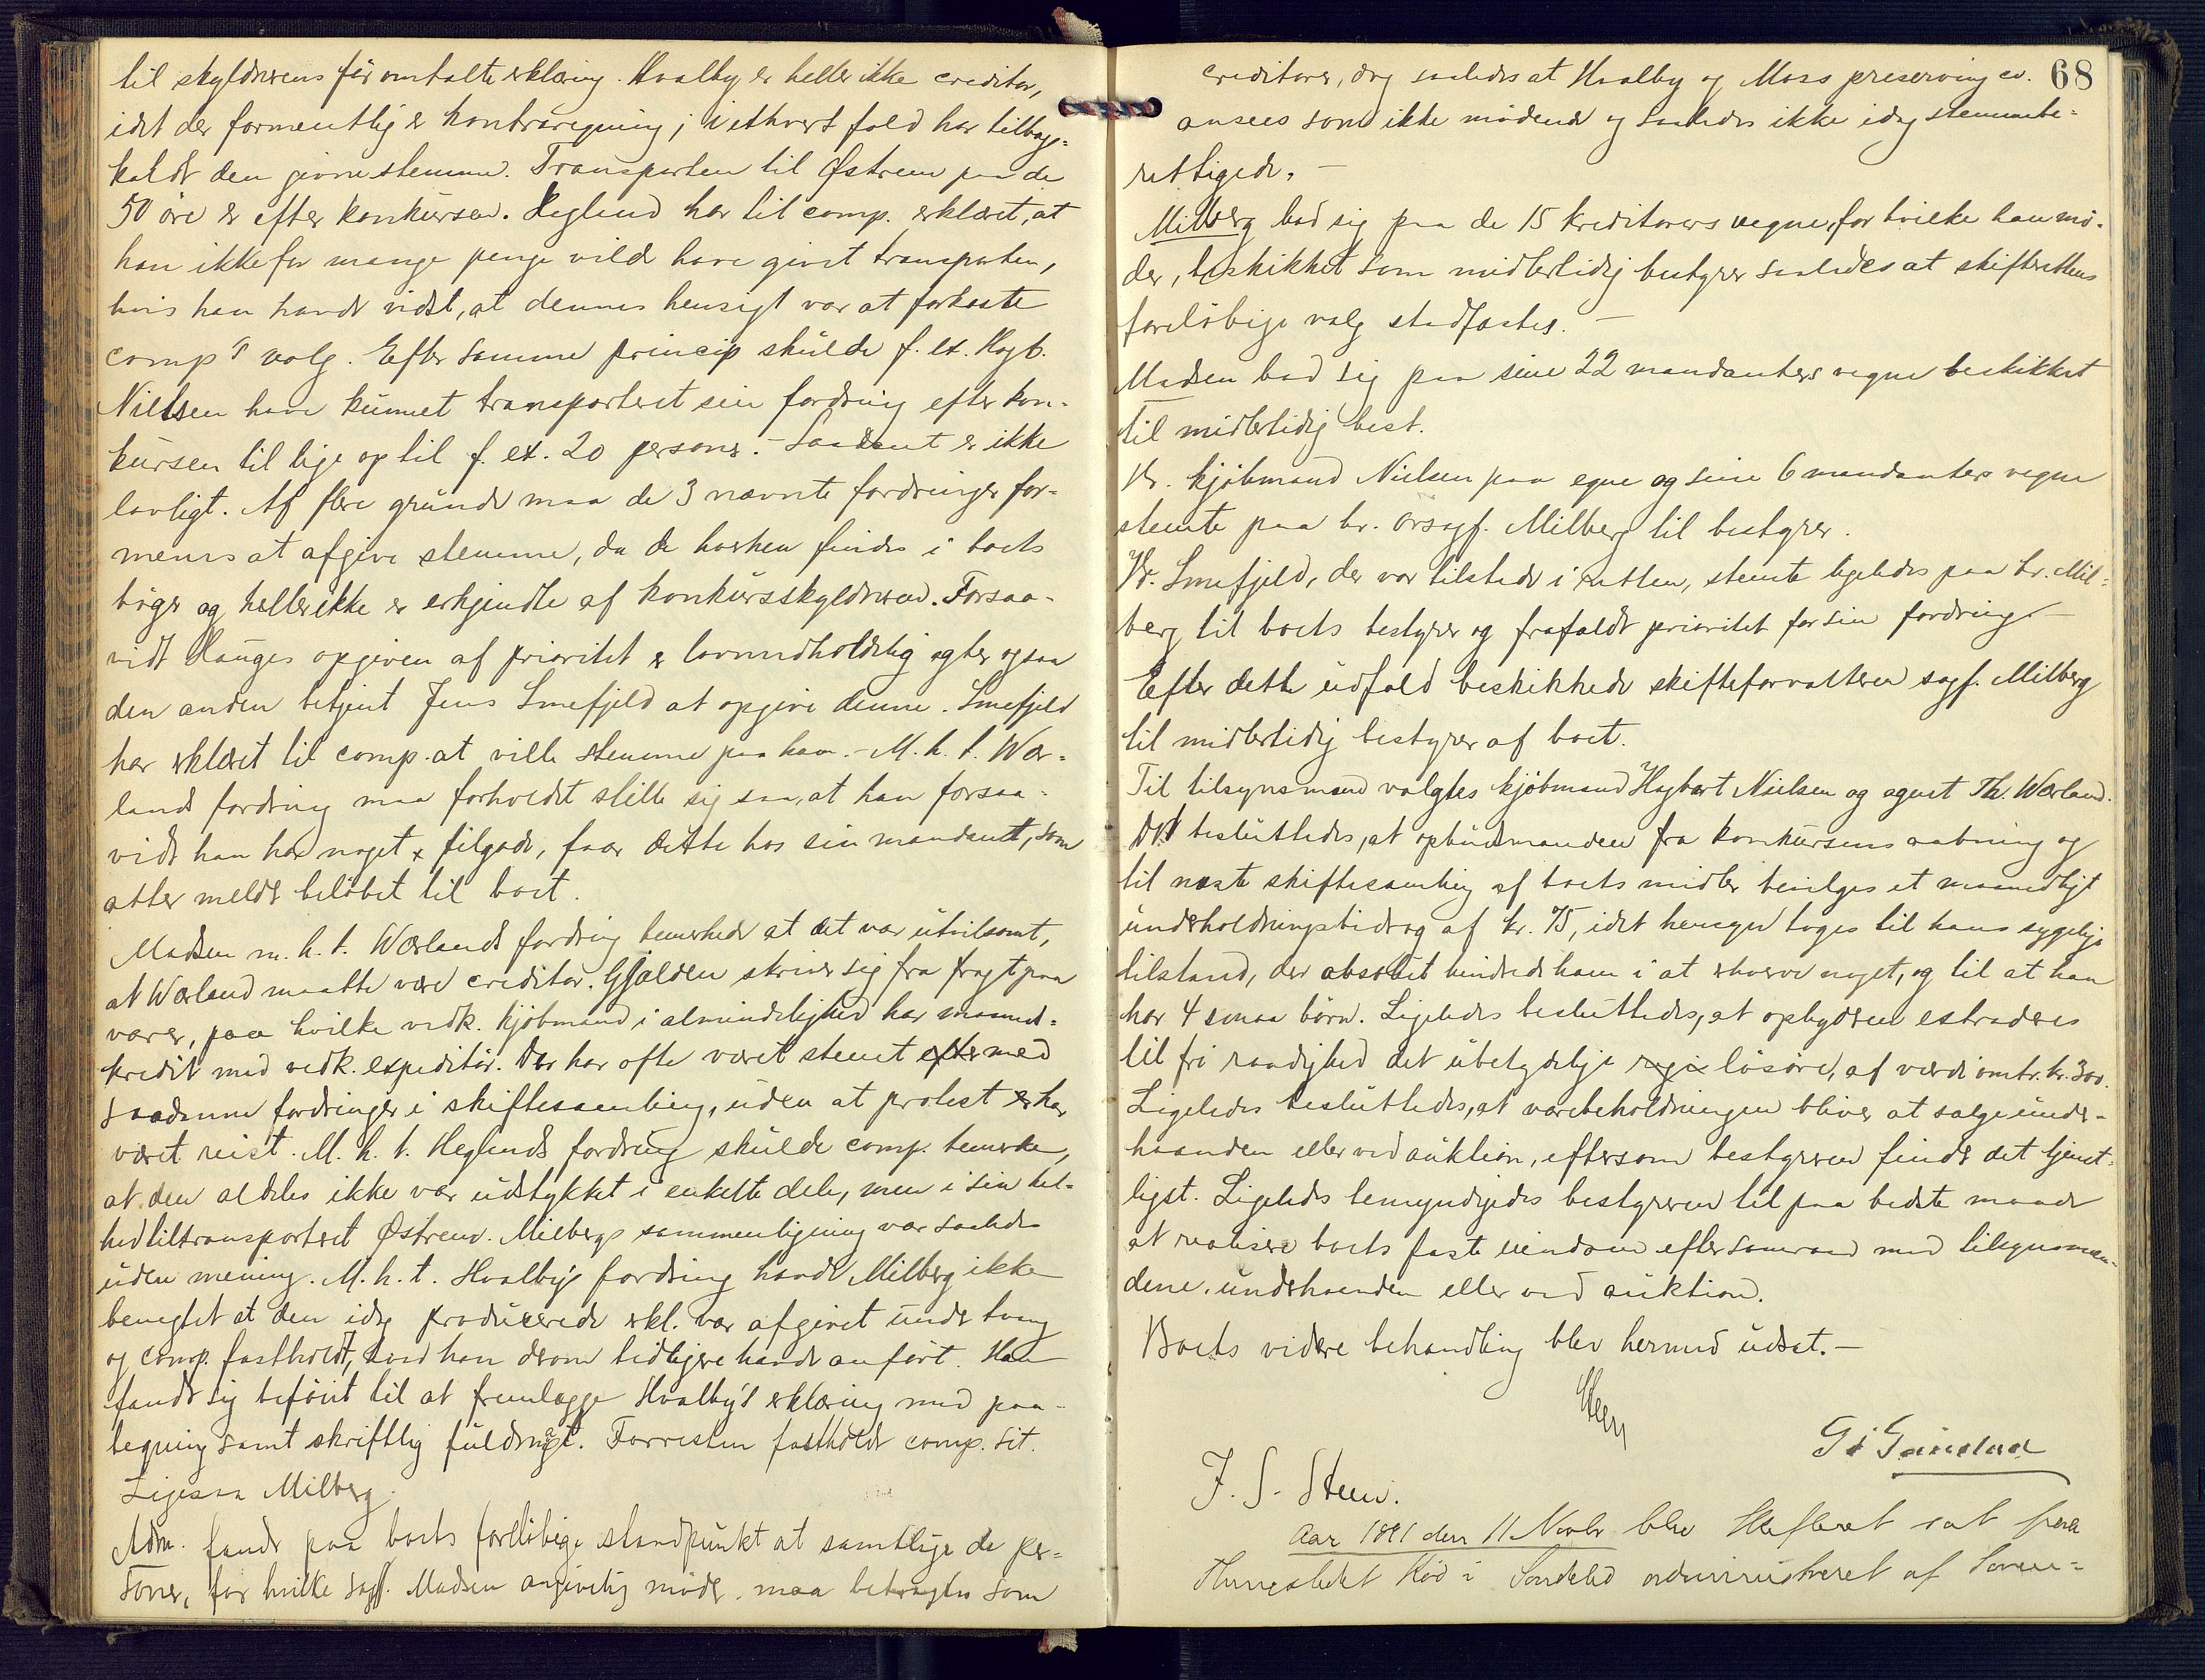 til skyldnerens før omtalte erklæring. Hvalby er heller ikke creditor,
idet der formentlig er kontraregning; i ethvert fald har tilbage-
kaldt den givne stemme. Transporten til Østrem paa de
50 øre er efter konkursen. Heglund har til comp. erklæret, at
han ikke for mange penge vilde have givet transporten,
hvis han havde vidst, at dennes hensigt var at forkaste
comp's valg. Efter samme princip skulde f. ex. Hagb.
Nielsen have kunnet transporteret sin fordring efter kon-
kursen til lige op til f. ex. 20 personer. – Saadant er ikke
lovligt. Af flere grunde maa de 3 nævnte fordringer for-
menes at afgive stemme, da de hverken findes i boets
bøger og heller ikke er erkjendte af konkursskyldneren. Forsaa-
vidt Hauges opgiven af prioritet er lovmedholdelig agter ogsaa
den anden betjent Jens Smefjeld at opgive denne. Smefjeld
har erklæret til comp. at ville stemme paa ham. – M. h. t. Wær-
lands fordring maa forholdet stille sig saa, at han forsaa-
vidt han har noget tilgode, faar dette hos sin mandant, som
atter melder beløbet til boet.
Madsen m. h. t. Wærlands fordring bemerkede at det var utvilsomt,
at Wærland maatte være creditor. Gjælden skriver sig fra fragt paa
varer, paa hvilke vedk. kjøbmand i almindelighed har maaned-
kredit med vedk. expeditør. Der har ofte været stemt efter med
saadanne fordringer i skiftesamling, uden at protest er har
været reist. M. h. t. Heglunds fordring skulde comp. bemerke,
at den aldeles ikke var udstykket i enkelte dele, men i sin hel-
hed tiltransporteret Østrem. Milbergs sammenligning var saaledes
uden mening. M. h. t. Hvalby's fordring havde Milberg ikke
benegtet at den idag producerede erkl. var afgivet under tvang
og comp. fastholdt, hvad han derom tidligere havde anført. Han
fandt sig beføiet til at fremlægge Hvalby's erklæring med paa-
tegning samt skriftlig fuldmagt. Forresten fastholdt comp. sit.
Ligesaa Milberg.
Adm. fandt paa boets foreløbige standpunkt at samtlige de per-
soner, for hvilke sagf. Madsen angivelig møder, maa betragtes som
68
creditorer, dog saaledes at Hvalby og Moss preserving co.
ansees som ikke mødende og saaledes ikke idag stemmebe-
rettigede. –
Milberg bad sig paa de 15 kreditorers vegne, for hvilke han mø-
der, beskikket som midlertidig bestyrer saaledes at skifterettens
foreløbige valg stadfæstes. –
Madsen bad sig paa sine 22 mandanters vegne beskikket
til midlertidig best.
Hr. kjøbmand Nielsen paa egne og sine 6 mandanters vegne
stemte paa hr. orsagf. Milberg til bestyrer.
Hr. Smefjeld, der var tilstede i retten, stemte ligeledes paa hr. Mil-
berg til boets bestyrer og frafaldt prioritet for sin fordring. –
Efter dette udfald beskikkede skifteforvalteren sagf. Milberg
til midlertidig bestyrer af boet.
Til tilsynsmænd valgtes kjøbmand Hagbart Nielsen og agent Th. Wærland.
Det besluttedes, at opbudsmanden fra konkursens aabning og
til næste skiftesamling af boets midler bevilges et maanedligt
underholdningsbidrag af kr. 75, idet hensyn toges til hans sygelige
tilstand, der absolut hindrede ham i at erhverve noget, og til at han
har 4 smaa børn. Ligeledes besluttedes, at opbyderen extraderes
til fri raadighed det ubetydelige løsøre, af værdi omtr. kr. 300.
Ligeledes besluttedes, at varebeholdningen bliver at sælge under-
haanden eller ved auktion, eftersom bestyreren finder det tjenst-
ligst. Ligeledes bemyndigedes bestyreren til paa bedste maade
at realisere boets faste eiendom efter samraad med tilsynsmæn-
dene, underhaanden eller ved auktion.
Boets videre behandling blev hermed udsat. –
J. S. Steen.
Aar 1891 den 11 Novbr blev Skifteret sat paa
Thingstedet Rød i Søndeled administreret af Soren-